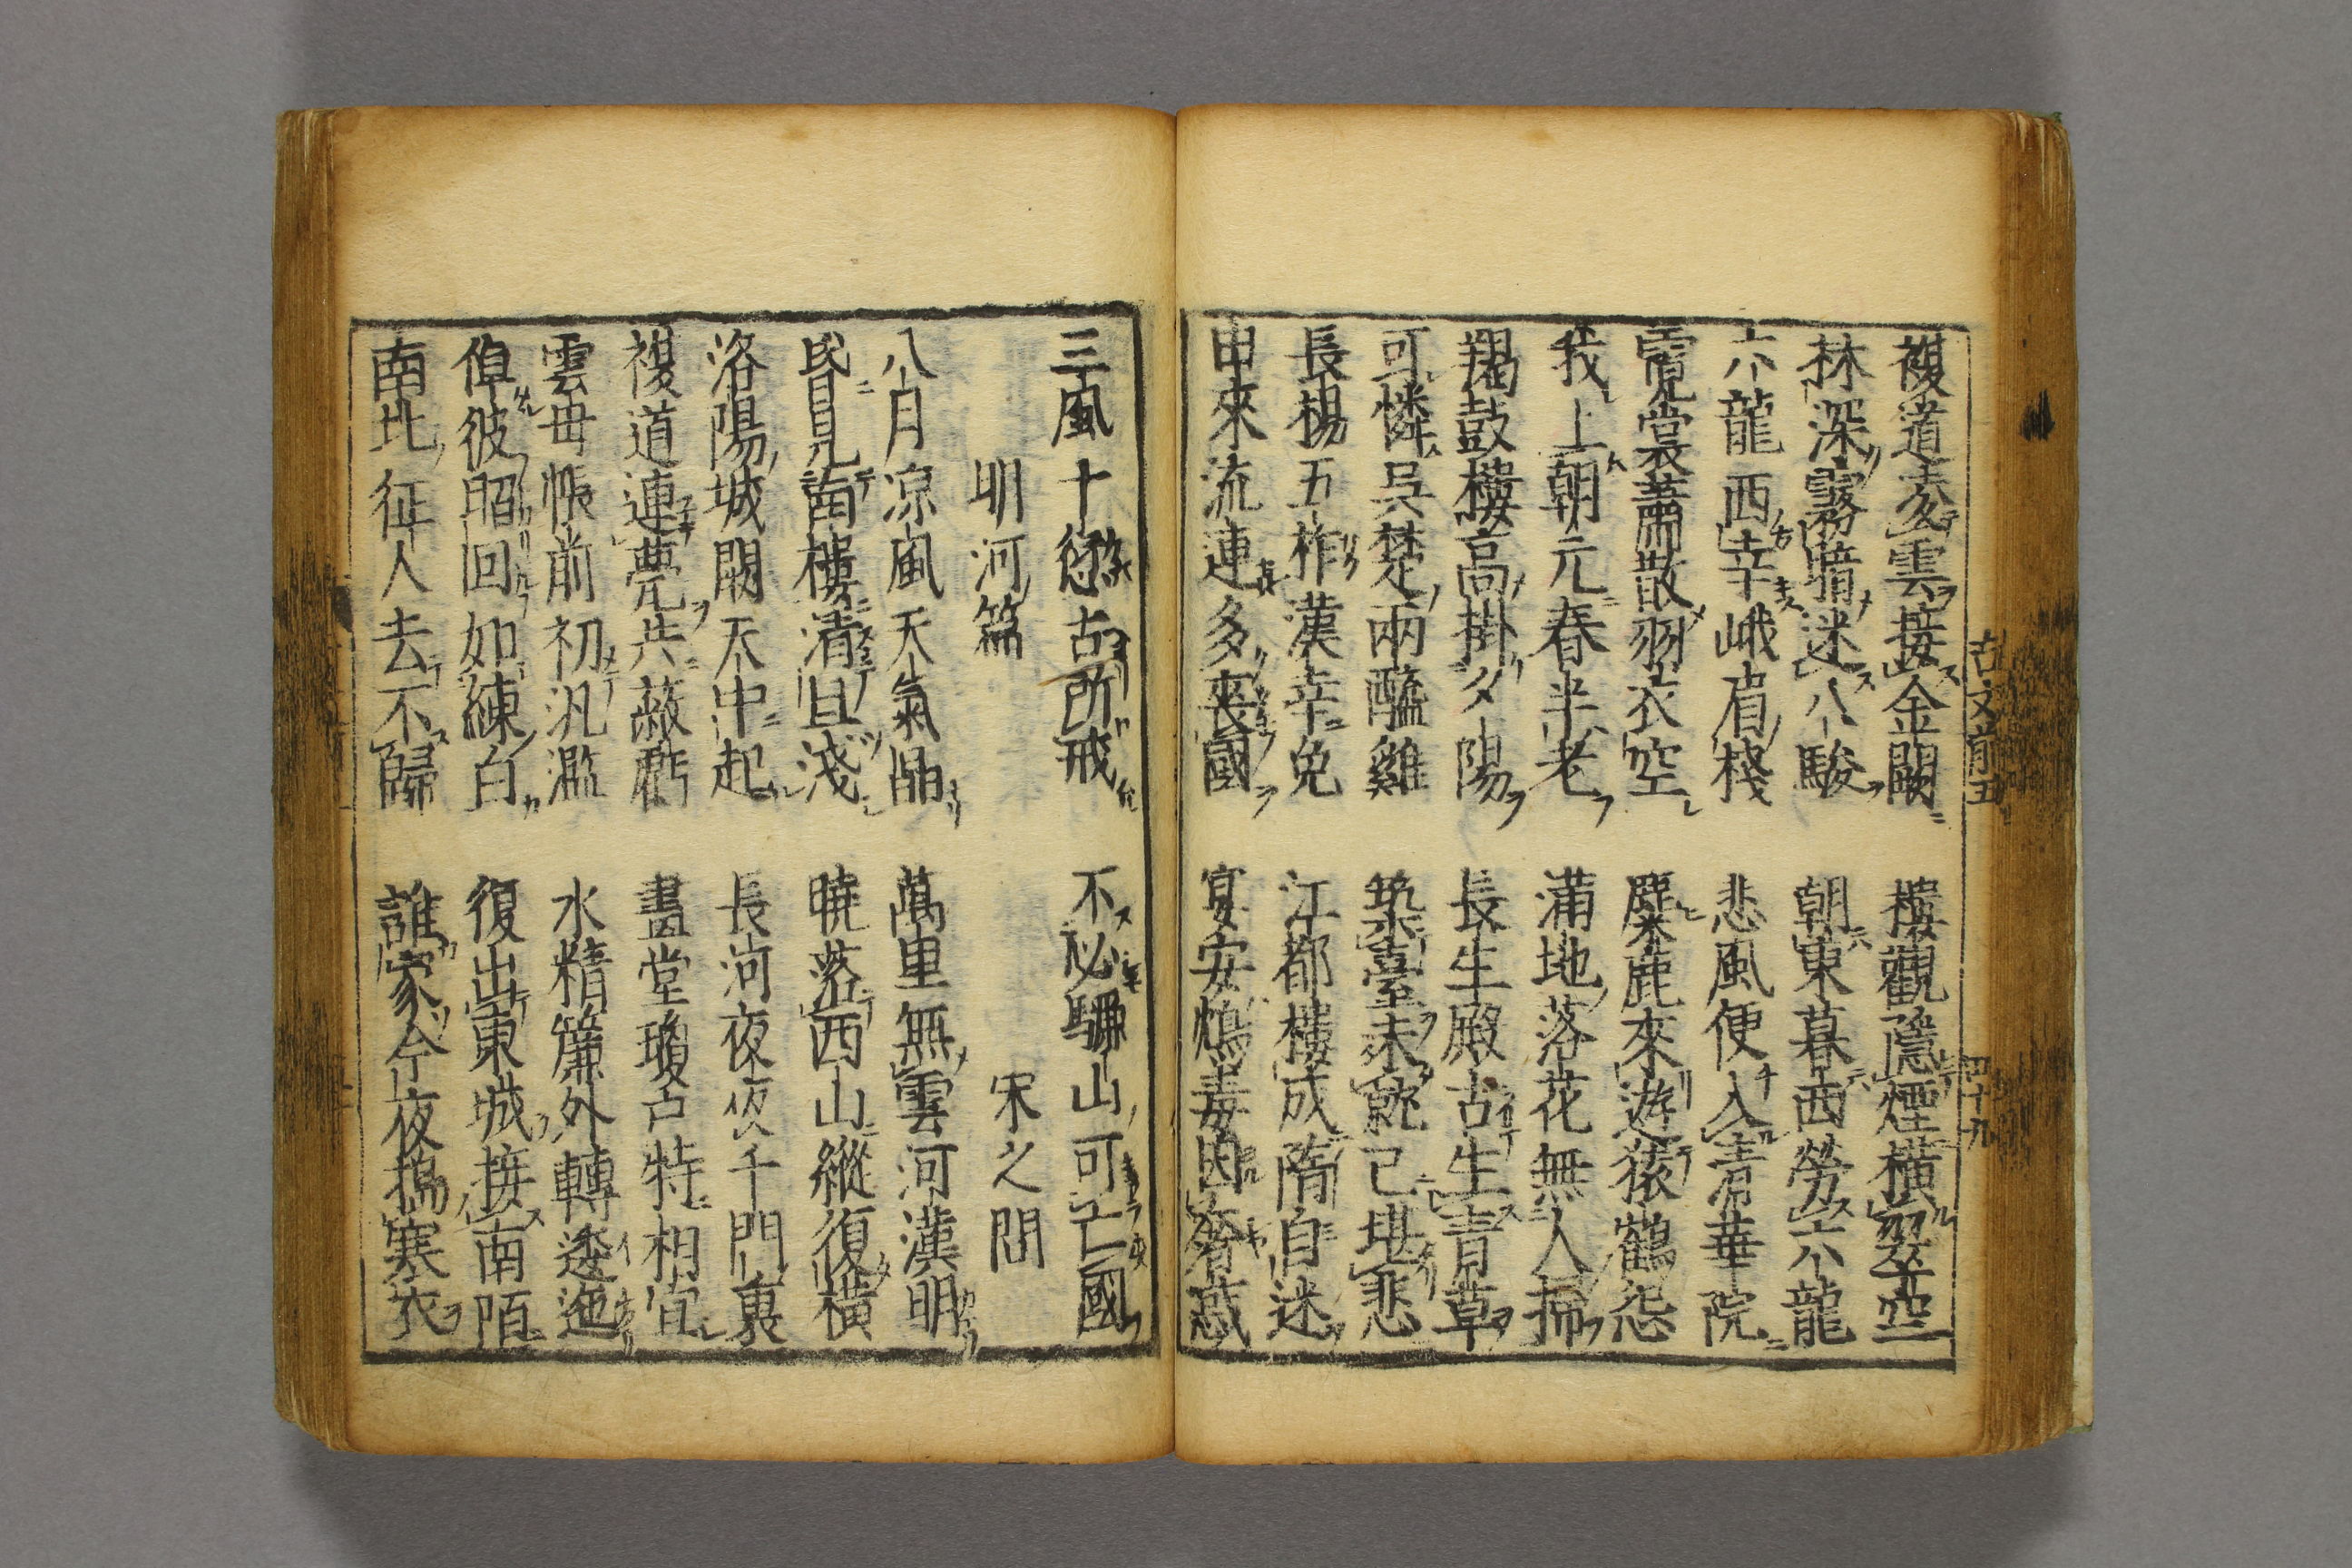 複道凌雲接金闕　樓觀隱煙橫翠空
林深霧暗迷八駿　朝東暮西勞六龍
六龍西幸峨眉棧　悲風便入青華院
霓裳蕭散羽衣空　麋鹿來遊猿鶴怨
我上朝元春半老　滿地落花無人掃
羯鼓樓高掛夕陽　長生殿古生青草
可憐吳楚兩醯雞　築臺未就已堪悲
長楊五柞漢幸免　江都樓成隋自迷
由來流連多喪國　宴安鴆毒因奢惑
古文前五　四十九
三風十愆古所戒　不必驪山可亡國
明河篇　宋之問
八月凉風天氣晶　萬里無雲河漢明
昏見南樓清且淺　曉落西山縱復橫
洛陽城闕天中起　長河夜夜千門裏
複道連甍共蔽虧　畫堂瓊戶特相宜
雲母帳前初汎濫　水精簾外轉逶迤
倬彼昭回如練白　復出東城接南陌
南北征人去不歸　誰家今夜擣寒衣